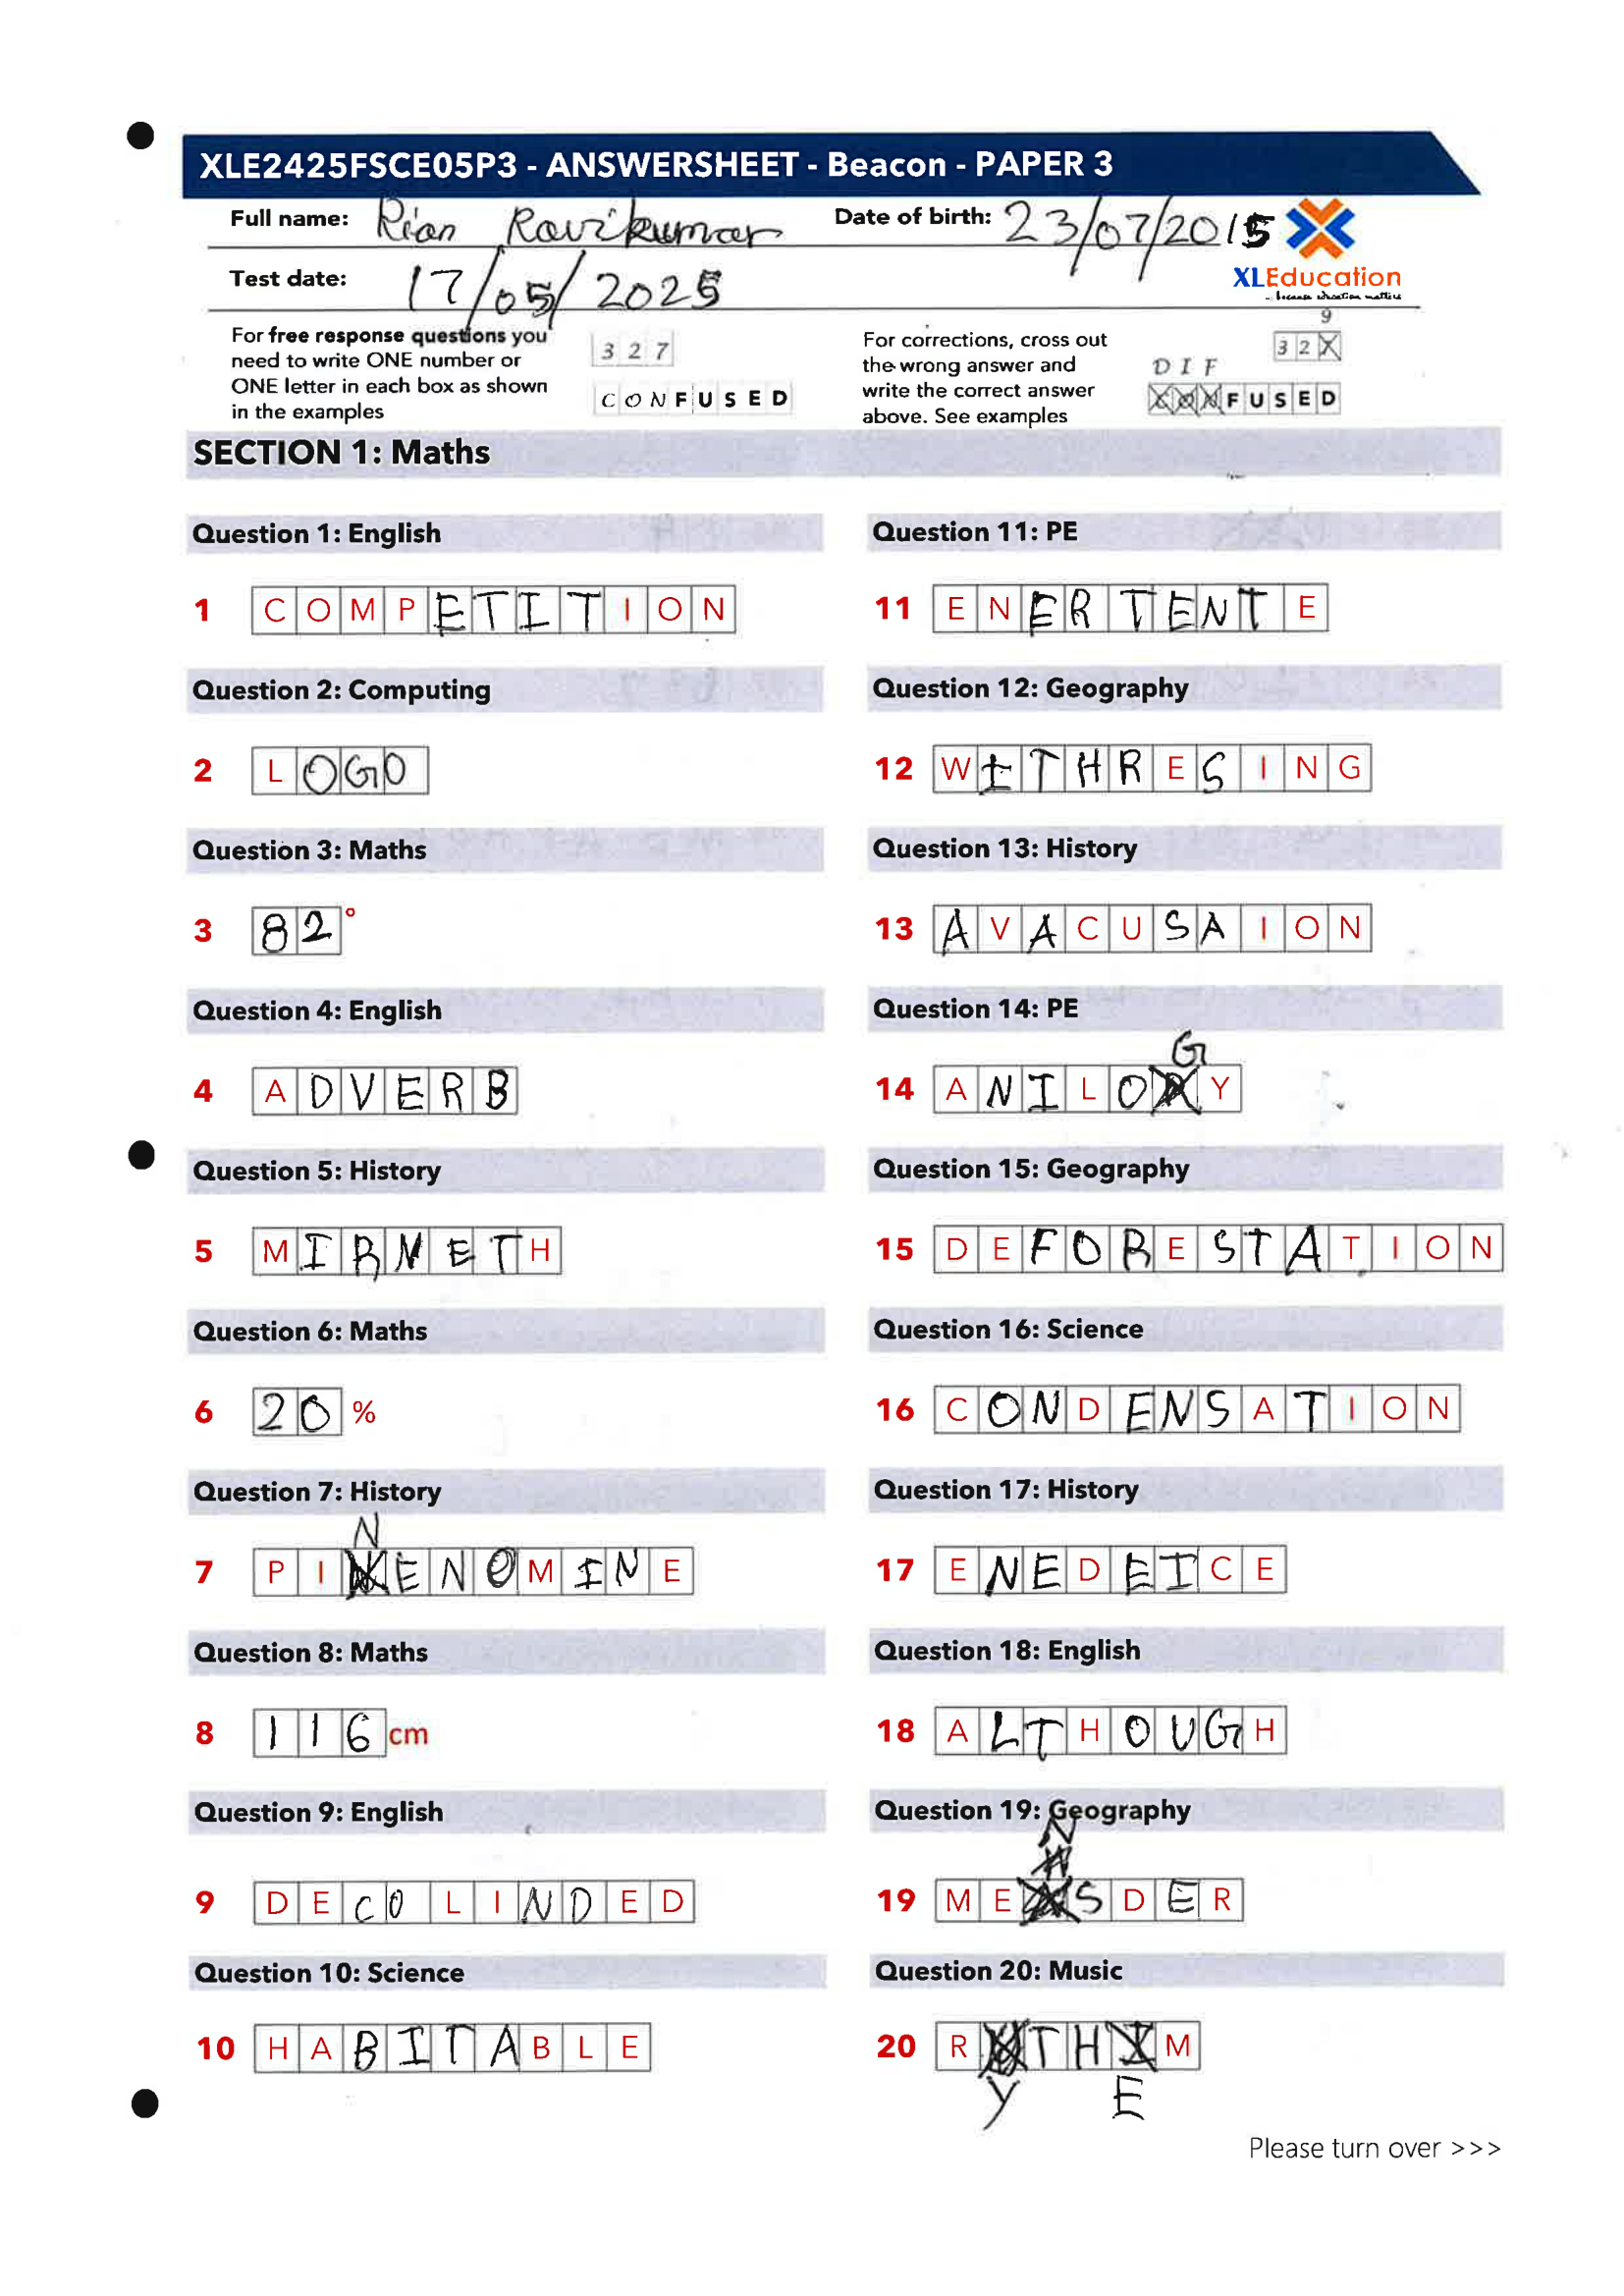 XLE2425FSCE05P3 - ANSWERSHEET - Beacon - PAPER 3
Full name: Rian Ravikumar Date of birth: 23/07/2015
Test date: 17/05/2025
XLEducation
... because education matters
For free response questions you
need to write ONE number or
ONE letter in each box as shown
in the examples
3 2 7
C O N F U S E D
For corrections, cross out
the wrong answer and
write the correct answer
above. See examples
9
3 2 X
D I F
F U S E D
SECTION 1: Maths
Question 1: English
1 C O M P E T I T I O N
Question 2: Computing
2 L O G O
Question 3: Maths
3 8 2 °
Question 4: English
4 A D V E R B
Question 5: History
5 M I R N E T H
Question 6: Maths
6 2 0 %
Question 7: History
N
7 P I E N O M I N E
Question 8: Maths
8 1 1 6 cm
Question 9: English
9 D E C O L I N D E D
Question 10: Science
10 H A B I T A B L E
Question 11: PE
11 E N E R T E N T E
Question 12: Geography
12 W I T H R E S I N G
Question 13: History
13 A V A C U S A I O N
Question 14: PE
G
14 A N I L O Y
Question 15: Geography
15 D E F O R E S T A T I O N
Question 16: Science
16 C O N D E N S A T I O N
Question 17: History
17 E N E D E I C E
Question 18: English
18 A L T H O U G H
Question 19: Geography
N
19 M E S D E R
Question 20: Music
20 R T H M
Y E
Please turn over >>>